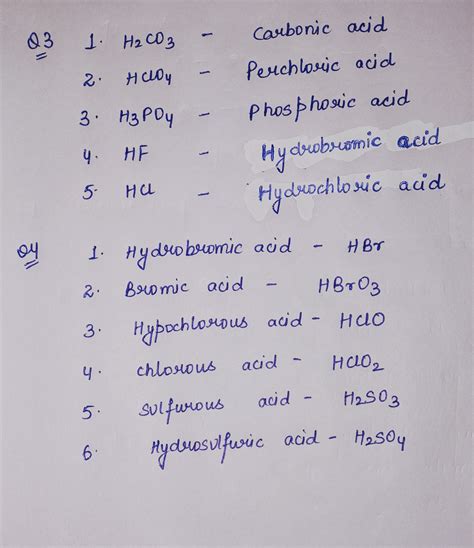 Q3 1. H2CO3 - Carbonic acid
2. HClO4 - Perchloric acid
3. H3PO4 - Phosphoric acid
4. HF - Hydrobromic acid
5. HCl - Hydrochloric acid
Q4 1. Hydrobromic acid - HBr
2. Bromic acid - HBrO3
3. Hypochlorous acid - HClO
4. chlorous acid - HClO2
5. Sulfurous acid - H2SO3
6. Hydrosulfuric acid - H2SO4